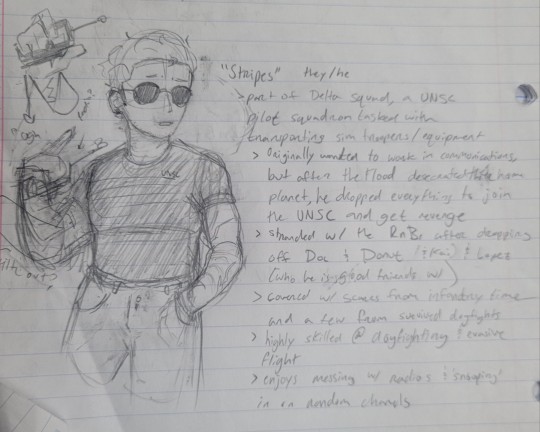 "Stripes" they/he
> part of Delta Squad, a UNSC
pilot squadron tasked with
transporting sim troopers/equipment
> Originally wanted to work in communications,
but after the flood desecrated home
planet, he dropped everything to join
the UNSC and get revenge
> stranded w/ the RnBs after dropping
off Doc & Donut & Lopez
(who he is good friends w/)
> covered w/ scars from infantry time
and a few from survived dogfights
> highly skilled @ dogfighting & evasive
flight
> enjoys messing w/ radios & 'snooping'
in on random channels
UNSC